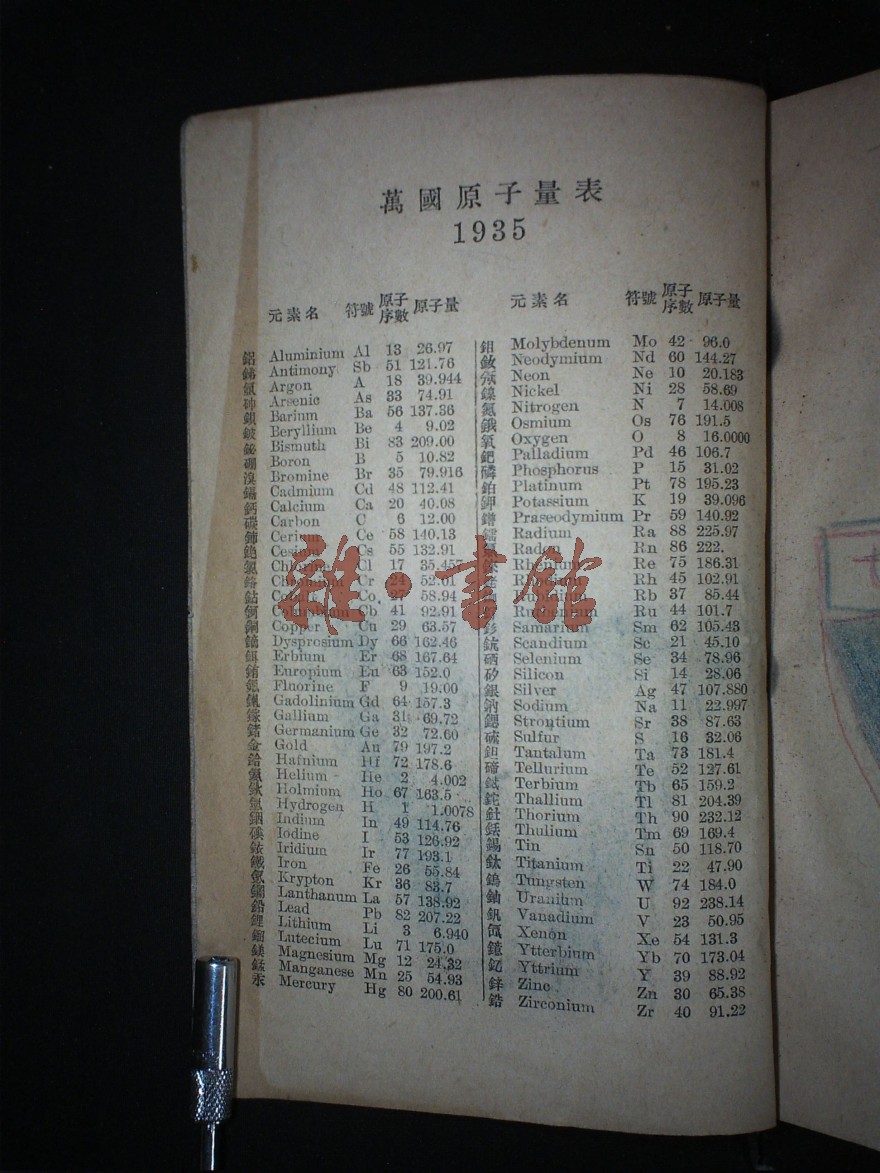 萬國原子量表
1935
元素名 符號 原子序數 原子量
鋁 Aluminium Al 13 26.97
銻 Antimony Sb 51 121.76
氬 Argon A 18 39.944
砷 Arsenic As 33 74.91
鋇 Barium Ba 56 137.36
鈹 Beryllium Be 4 9.02
鉍 Bismuth Bi 83 209.00
硼 Boron B 5 10.82
溴 Bromine Br 35 79.916
鎘 Cadmium Cd 48 112.41
鈣 Calcium Ca 20 40.08
碳 Carbon C 6 12.00
鈰 Cerium Ce 58 140.13
銫 Cesium Cs 55 132.91
氯 Chlorine Cl 17 35.457
鉻 Chromium Cr 24 52.01
鈷 Cobalt Co 27 58.94
鈳 Columbium Cb 41 92.91
銅 Copper Cu 29 63.57
鏑 Dysprosium Dy 66 162.46
鉺 Erbium Er 68 167.64
銪 Europium Eu 63 152.0
Fluorine F 9 19.00
Gadolinium Gd 64 157.3
鎵 Gallium Ga 31 69.72
鍺 Germanium Ge 32 72.60
金 Gold Au 79 197.2
鉿 Hafnium Hf 72 178.6
氦 Helium He 2 4.002
鈥 Holmium Ho 67 163.5
氫 Hydrogen H 1 1.0078
銦 Indium In 49 114.76
碘 Iodine I 53 126.92
銥 Iridium Ir 77 193.1
鐵 Iron Fe 26 55.84
氪 Krypton Kr 36 83.7
鑭 Lanthanum La 57 138.92
鉛 Lead Pb 82 207.22
鋰 Lithium Li 3 6.940
鎦 Lutecium Lu 71 175.0
鎂 Magnesium Mg 12 24.32
錳 Manganese Mn 25 54.93
汞 Mercury Hg 80 200.61
元素名 符號 原子序數 原子量
鉬 Molybdenum Mo 42 96.0
釹 Neodymium Nd 60 144.27
氖 Neon Ne 10 20.183
鎳 Nickel Ni 28 58.69
氮 Nitrogen N 7 14.008
鋨 Osmium Os 76 191.5
氧 Oxygen O 8 16.0000
鈀 Palladium Pd 46 106.7
磷 Phosphorus P 15 31.02
鉑 Platinum Pt 78 195.23
鉀 Potassium K 19 39.096
鐠 Praseodymium Pr 59 140.92
鐳 Radium Ra 88 225.97
氡 Radon Rn 86 222.
錸 Rhenium Re 75 186.31
銠 Rhodium Rh 45 102.91
Rubidium Rb 37 85.44
Ruthenium Ru 44 101.7
釤 Samarium Sm 62 105.43
鈧 Scandium Sc 21 45.10
硒 Selenium Se 34 78.96
矽 Silicon Si 14 28.06
銀 Silver Ag 47 107.880
鈉 Sodium Na 11 22.997
鍶 Strontium Sr 38 87.63
硫 Sulfur S 16 32.06
鉭 Tantalum Ta 73 181.4
碲 Tellurium Te 52 127.61
鋱 Terbium Tb 65 159.2
鉈 Thallium Tl 81 204.39
釷 Thorium Th 90 232.12
銩 Thulium Tm 69 169.4
錫 Tin Sn 50 118.70
鈦 Titanium Ti 22 47.90
鎢 Tungsten W 74 184.0
鈾 Uranium U 92 238.14
釩 Vanadium V 23 50.95
氙 Xenon Xe 54 131.3
鐿 Ytterbium Yb 70 173.04
釔 Yttrium Y 39 88.92
鋅 Zinc Zn 30 65.38
鋯 Zirconium Zr 40 91.22
雅·書館